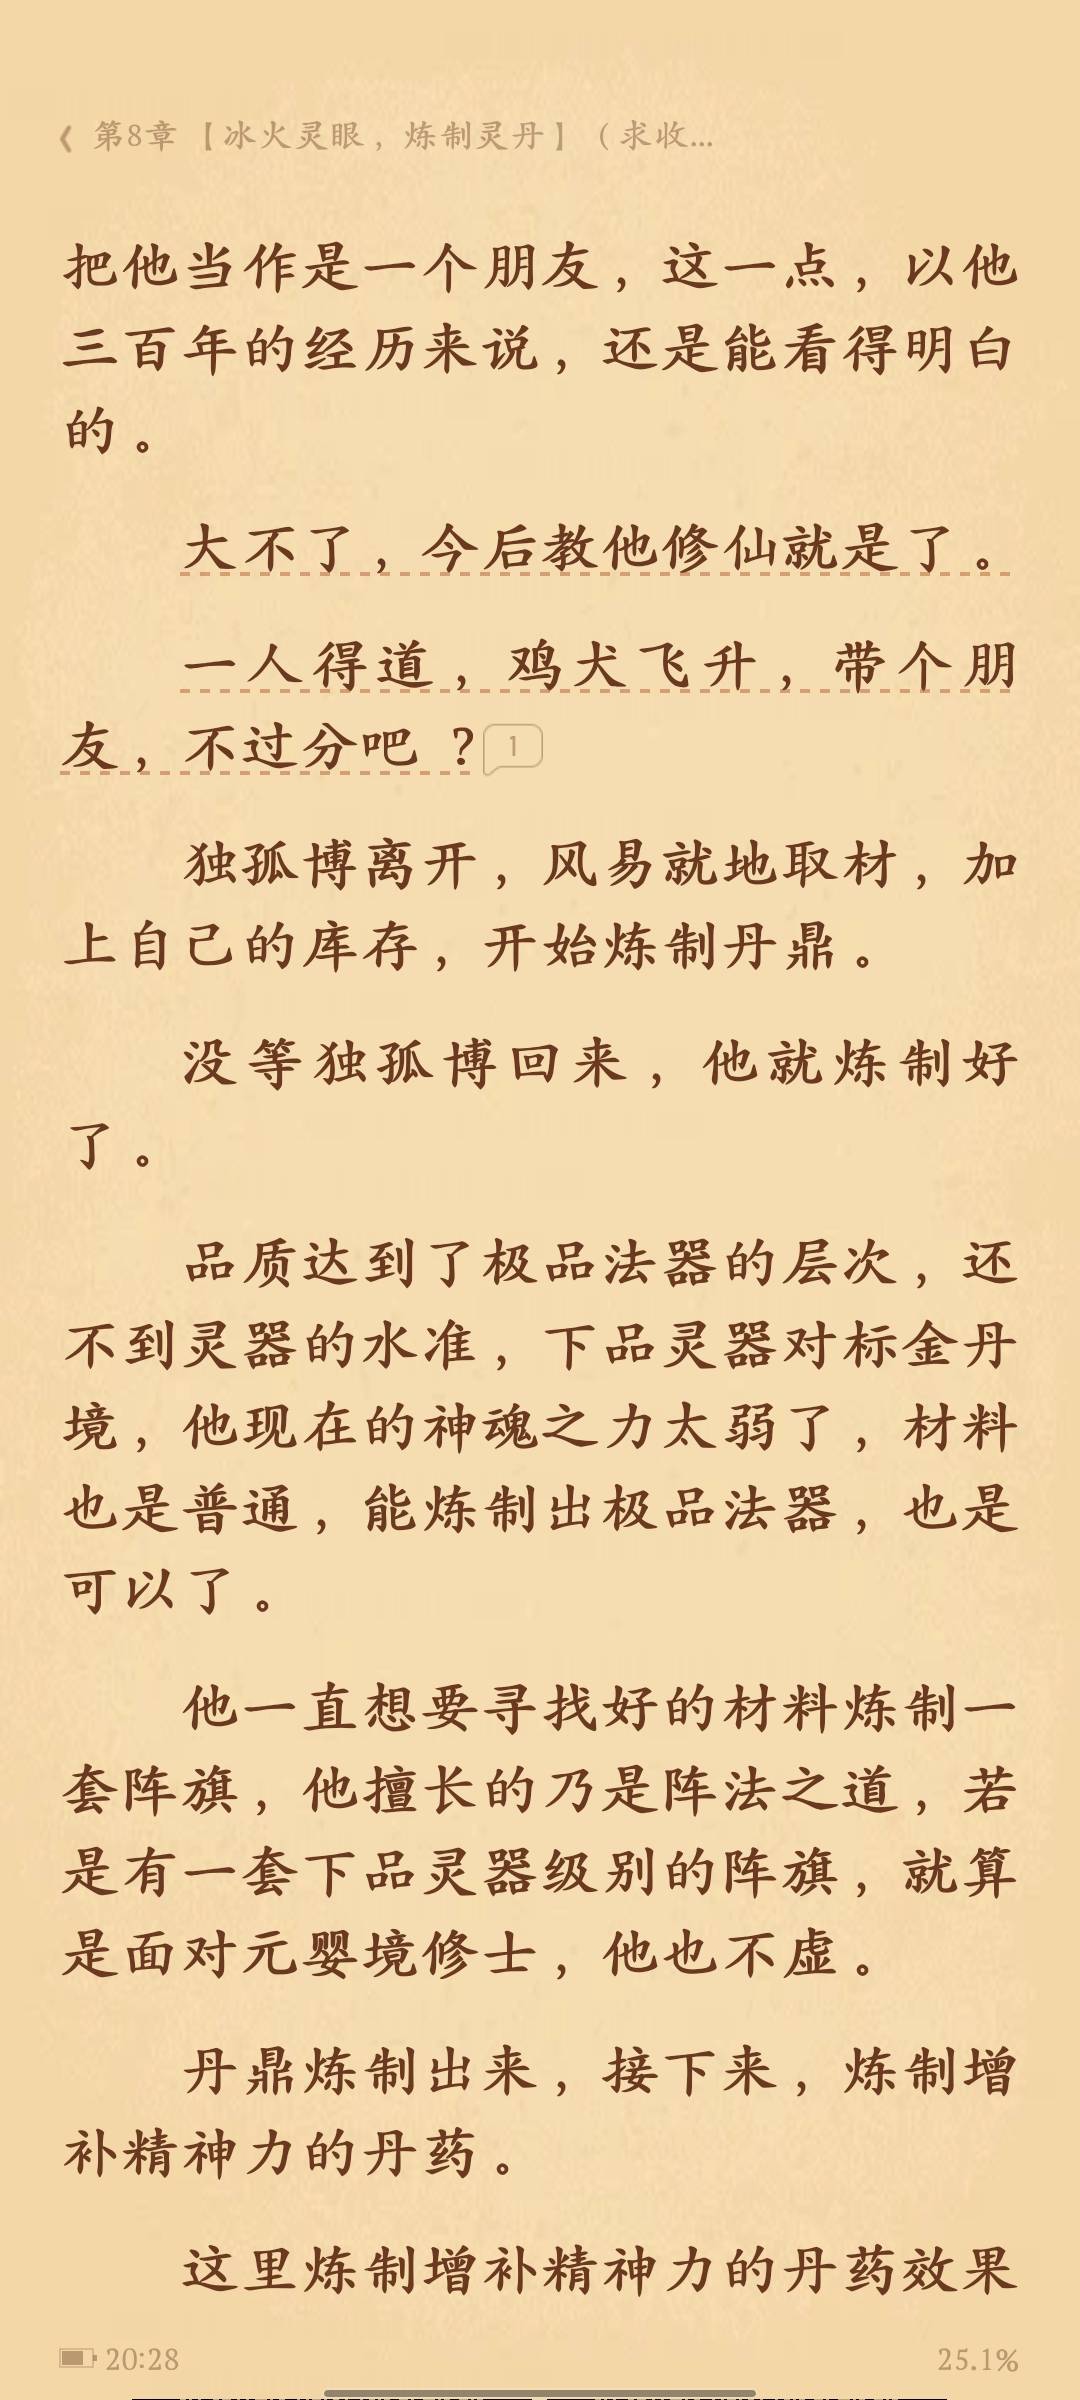 《 第8章 【冰火灵眼，炼制灵丹】（求收...
把他当作是一个朋友，这一点，以他
三百年的经历来说，还是能看得明白
的。
大不了，今后教他修仙就是了。
一人得道，鸡犬飞升，带个朋
友，不过分吧？ 1
独孤博离开，风易就地取材，加
上自己的库存，开始炼制丹鼎。
没等独孤博回来，他就炼制好
了。
品质达到了极品法器的层次，还
不到灵器的水准，下品灵器对标金丹
境，他现在的神魂之力太弱了，材料
也是普通，能炼制出极品法器，也是
可以了。
他一直想要寻找好的材料炼制一
套阵旗，他擅长的乃是阵法之道，若
是有一套下品灵器级别的阵旗，就算
是面对元婴境修士，他也不虚。
丹鼎炼制出来，接下来，炼制增
补精神力的丹药。
这里炼制增补精神力的丹药效果
20:28 25.1%